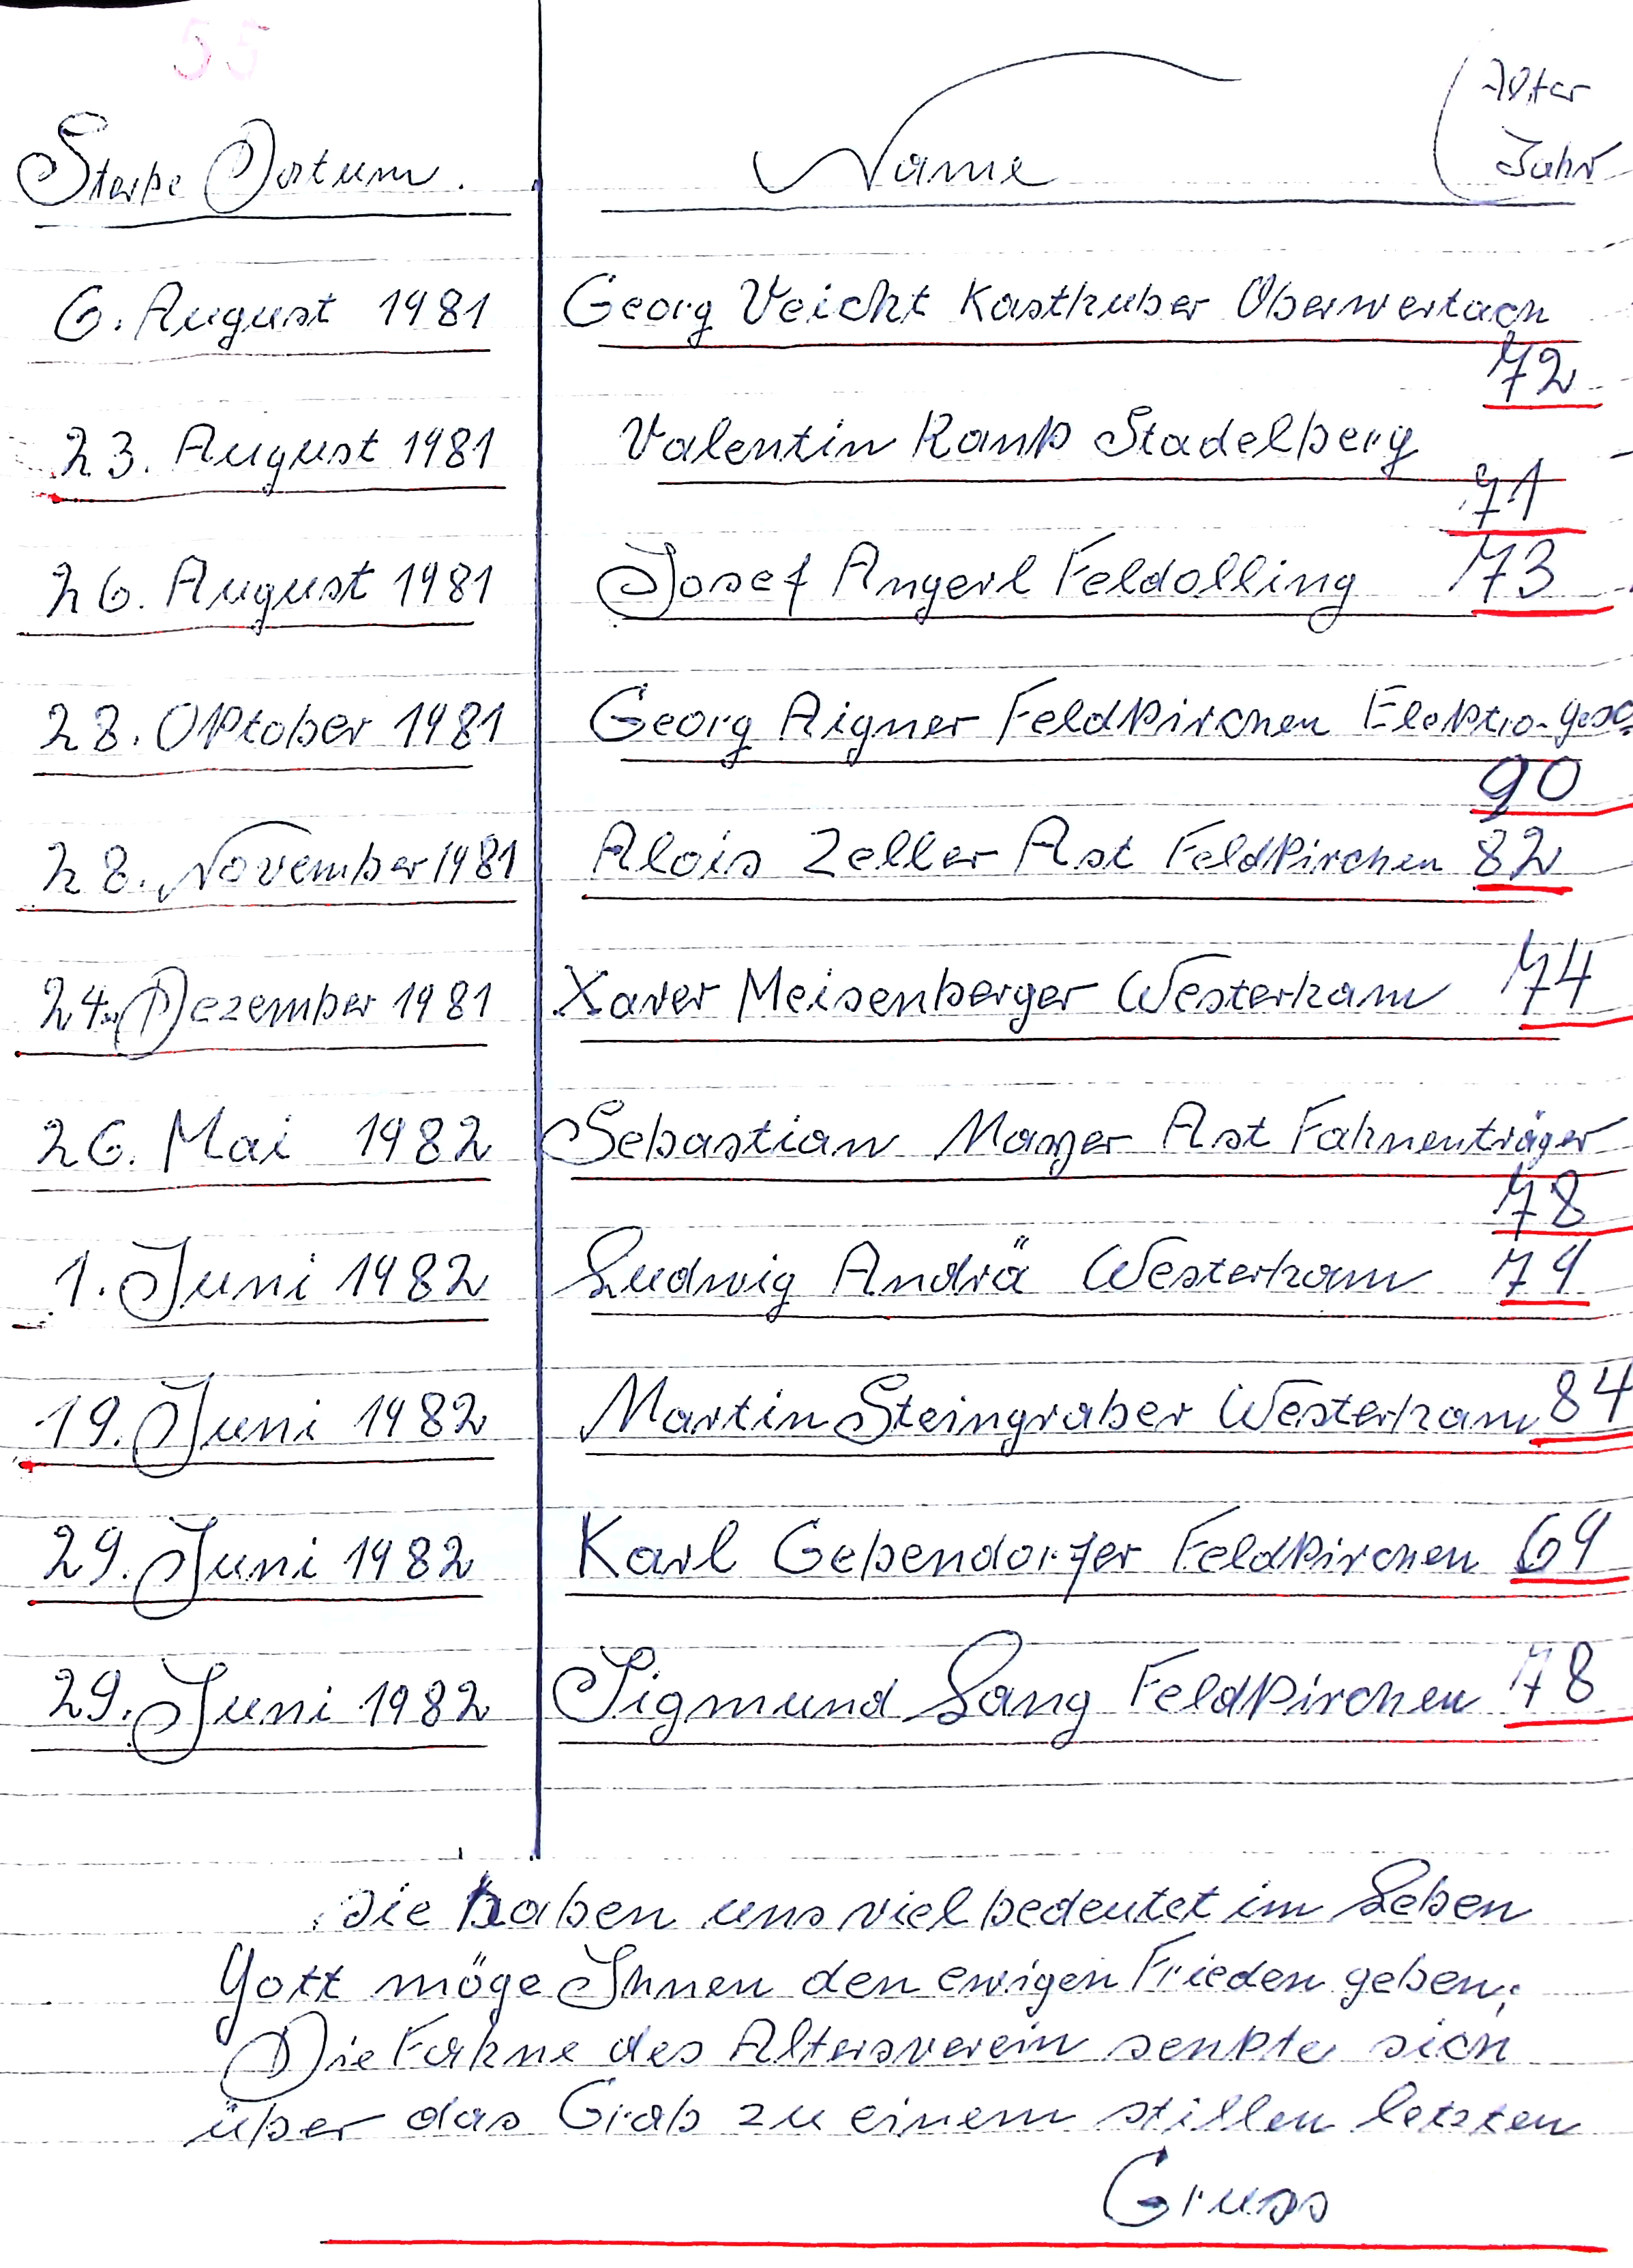 55
Alter
Sterbe Datum. Name Jahr
6. August 1981 Georg Veicht Kasthuber Oberwertach
72
23. August 1981 Valentin Kank Stadelberg
71
26. August 1981 Josef Angerl Feldolling 73
28. Oktober 1981 Georg Aigner Feldkirchen Elektro-gesc.
90
28. November 1981 Alois Zeller Ast Feldkirchen 82
24. Dezember 1981 Xaver Meisenberger Westerham 74
26. Mai 1982 Sebastian Mayer Ast Fahnenträger
78
1. Juni 1982 Ludwig Andrä Westerham 79
19. Juni 1982 Martin Steingraber Westerham 84
29. Juni 1982 Karl Gebendorfer Feldkirchen 69
29. Juni 1982 Sigmund Lang Feldkirchen 78
Sie haben uns viel bedeutet im Leben
Gott möge Ihnen den ewigen Frieden geben;
Die Fahne des Altersverein senkte sich
über das Grab zu einem stillen letzten
Gruss